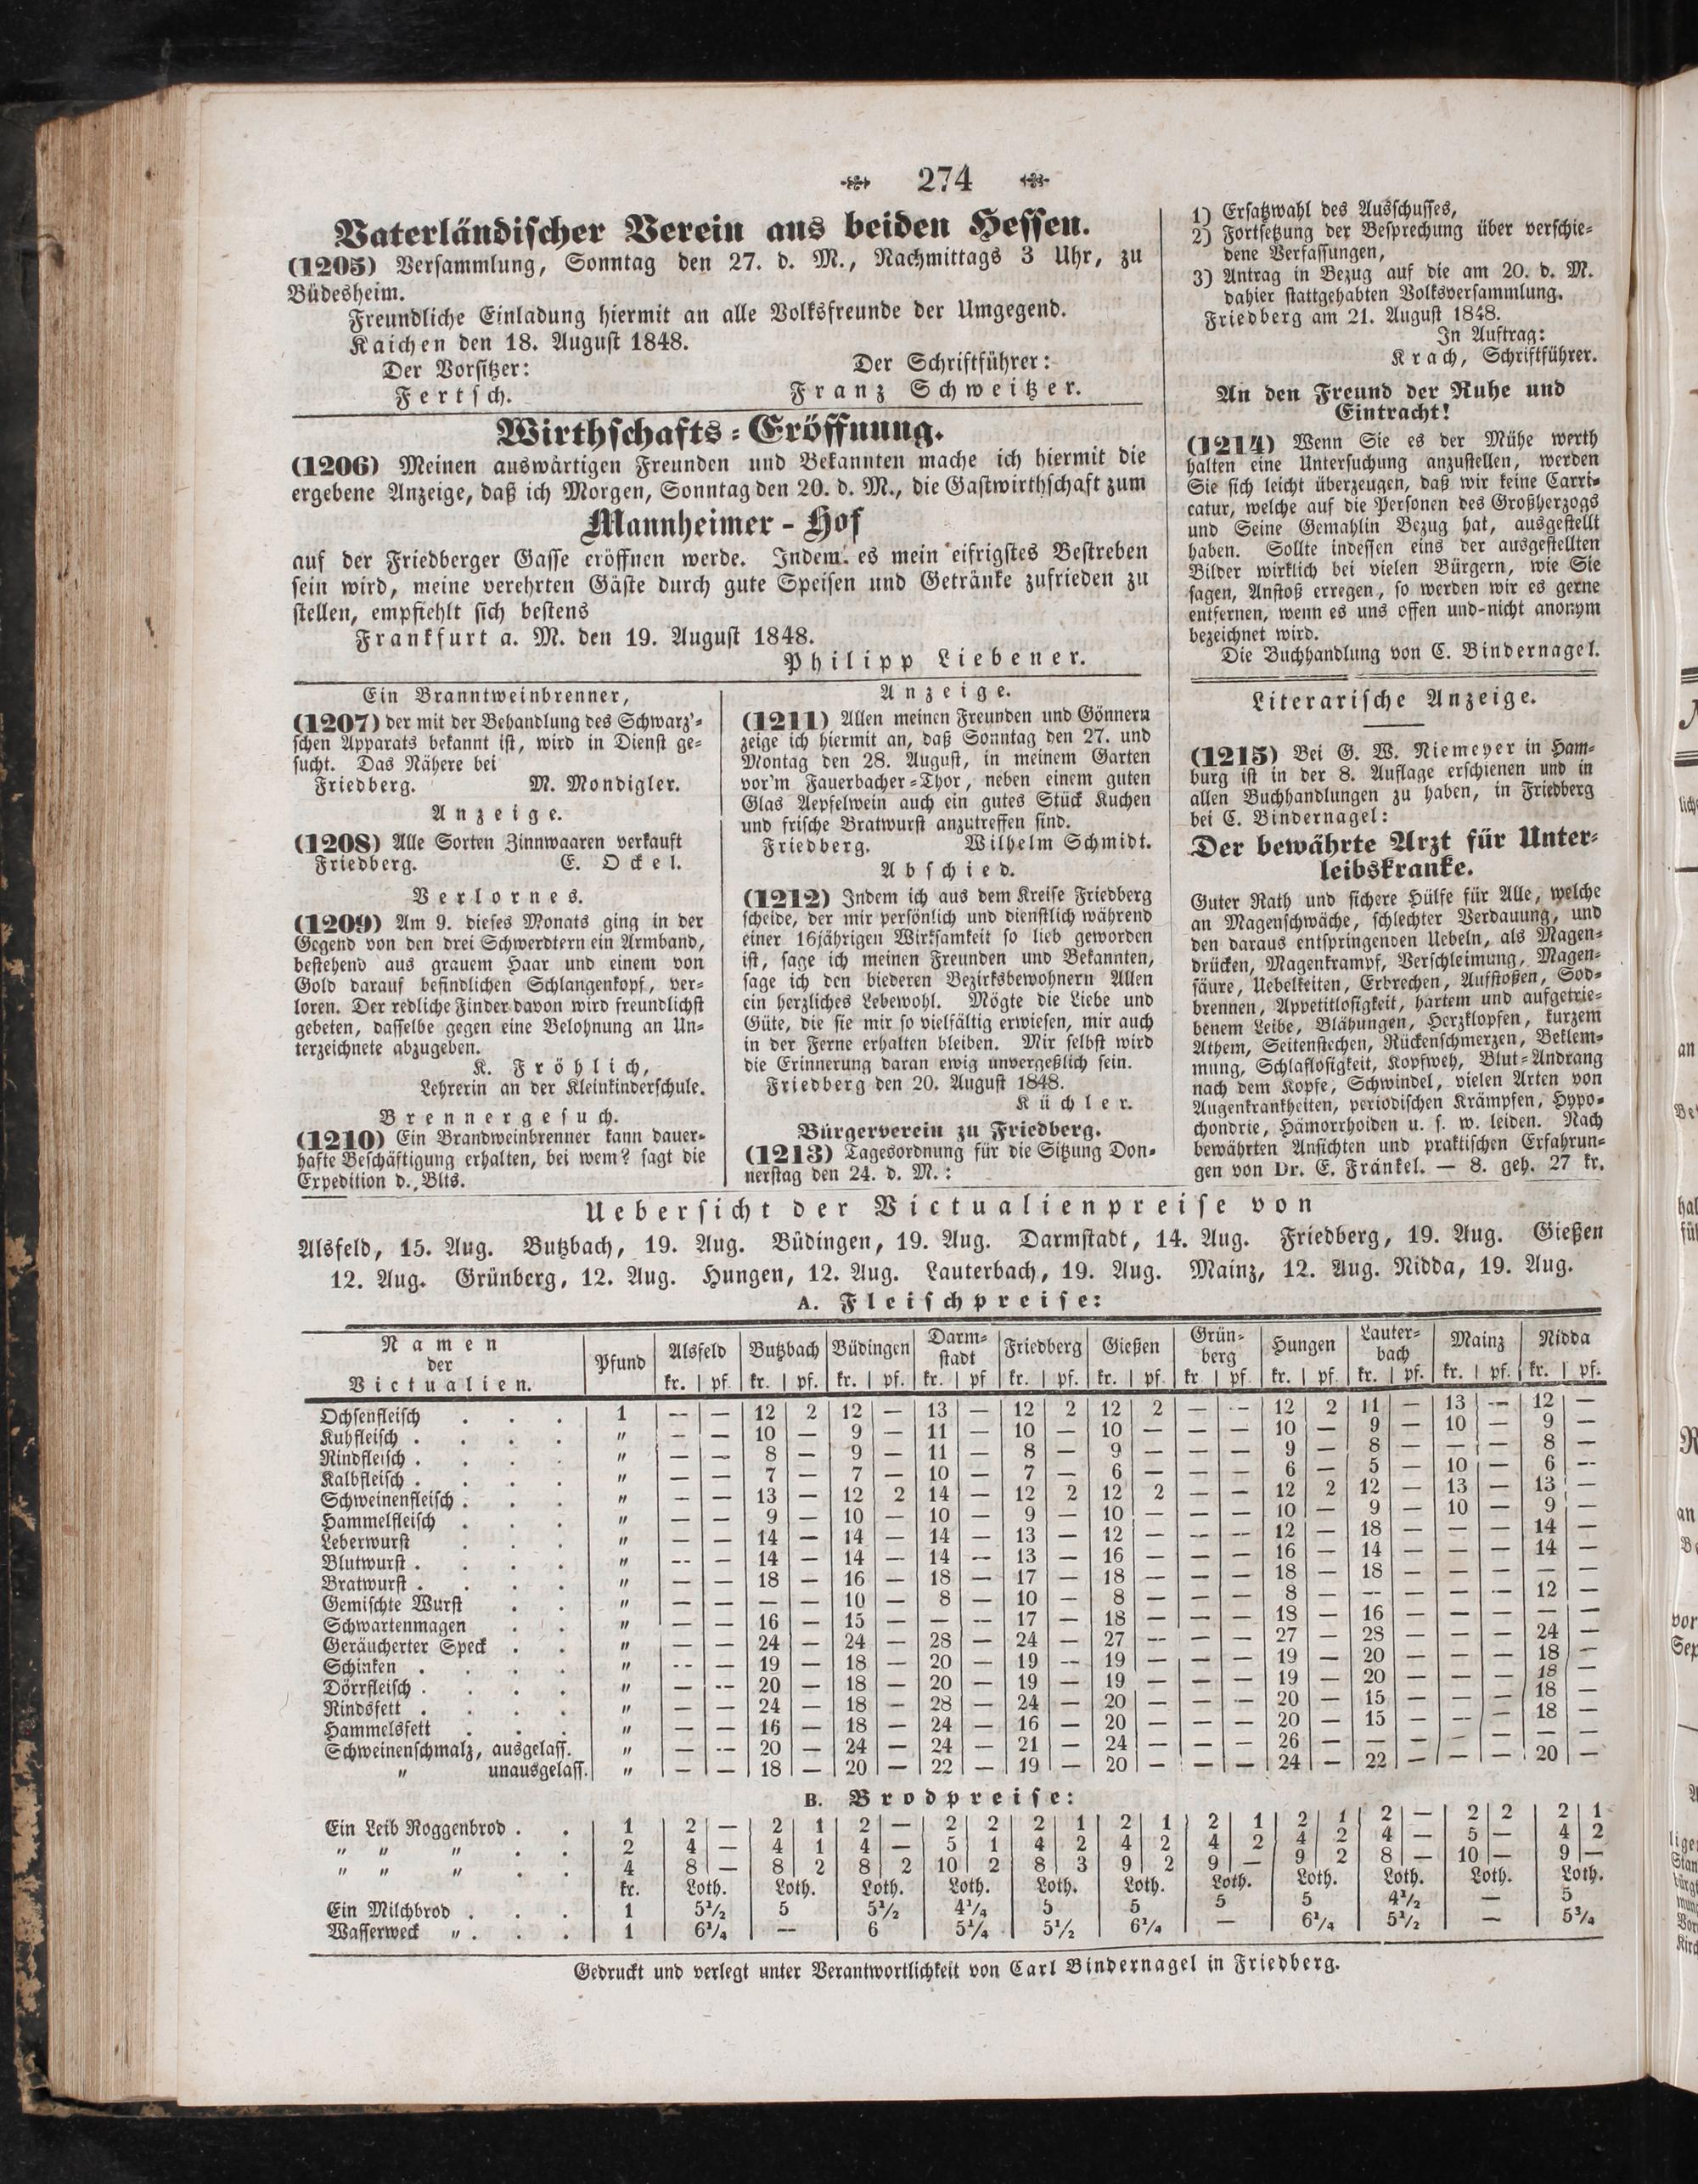 274
Vaterländischer Verein aus beiden Hessen.
(1205) Versammlung, Sonntag den 27. d. M., Nachmittags 3 Uhr, zu
Büdesheim.
Freundliche Einladung hiermit an alle Volksfreunde der Umgegend.
Kaichen den 18. August 1848.
Der Vorsitzer: Der Schriftführer:
Fertsch. Franz Schweitzer.
Wirthschafts-Eröffnung.
(1206) Meinen auswärtigen Freunden und Bekannten mache ich hiermit die
ergebene Anzeige, daß ich Morgen, Sonntag den 20. d. M., die Gastwirthschaft zum
Mannheimer-Hof
auf der Friedberger Gasse eröffnen werde. Indem es mein eifrigstes Bestreben
sein wird, meine verehrten Gäste durch gute Speisen und Getränke zufrieden zu
stellen, empfiehlt sich bestens
Frankfurt a. M. den 19. August 1848.
Philipp Liebener.
Ein Branntweinbrenner,
(1207) der mit der Behandlung des Schwarz'-
schen Apparats bekannt ist, wird in Dienst ge-
sucht. Das Nähere bei
Friedberg. M. Mondigler.
Anzeige.
(1208) Alle Sorten Zinnwaaren verkauft
Friedberg. E. Ockel.
Verlornes.
(1209) Am 9. dieses Monats ging in der
Gegend von den drei Schwerdtern ein Armband,
bestehend aus grauem Haar und einem von
Gold darauf befindlichen Schlangenkopf, ver-
loren. Der redliche Finder davon wird freundlichst
gebeten, dasselbe gegen eine Belohnung an Un-
terzeichnete abzugeben.
K. Fröhlich,
Lehrerin an der Kleinkinderschule.
Brennergesuch.
(1210) Ein Brandweinbrenner kann dauer-
hafte Beschäftigung erhalten, bei wem? sagt die
Expedition d. Blts.
Anzeige.
(1211) Allen meinen Freunden und Gönnern
zeige ich hiermit an, daß Sonntag den 27. und
Montag den 28. August, in meinem Garten
vor'm Fauerbacher-Thor, neben einem guten
Glas Aepfelwein auch ein gutes Stück Kuchen
und frische Bratwurst anzutreffen sind.
Friedberg. Wilhelm Schmidt.
Abschied.
(1212) Indem ich aus dem Kreise Friedberg
scheide, der mir persönlich und dienstlich während
einer 16jährigen Wirksamkeit so lieb geworden
ist, sage ich meinen Freunden und Bekannten,
sage ich den biederen Bezirksbewohnern Allen
ein herzliches Lebewohl. Mögte die Liebe und
Güte, die sie mir so vielfältig erwiesen, mir auch
in der Ferne erhalten bleiben. Mir selbst wird
die Erinnerung daran ewig unvergeßlich sein.
Friedberg den 20. August 1848.
Küchler.
Bürgerverein zu Friedberg.
(1213) Tagesordnung für die Sitzung Don-
nerstag den 24. d. M.:
1) Ersatzwahl des Ausschusses,
2) Fortsetzung der Besprechung über verschie-
dene Verfassungen,
3) Antrag in Bezug auf die am 20. d. M.
dahier stattgehabten Volksversammlung.
Friedberg am 21. August 1848.
In Auftrag:
Krach, Schriftführer.
An den Freund der Ruhe und
Eintracht!
(1214) Wenn Sie es der Mühe werth
halten eine Untersuchung anzustellen, werden
Sie sich leicht überzeugen, daß wir keine Carri-
catur, welche auf die Personen des Großherzogs
und Seine Gemahlin Bezug hat, ausgestellt
haben. Sollte indessen eins der ausgestellten
Bilder wirklich bei vielen Bürgern, wie Sie
sagen, Anstoß erregen, so werden wir es gerne
entfernen, wenn es uns offen und nicht anonym
bezeichnet wird.
Die Buchhandlung von C. Bindernagel.
Literarische Anzeige.
(1215) Bei G. W. Niemeyer in Ham-
burg ist in der 8. Auflage erschienen und in
allen Buchhandlungen zu haben, in Friedberg
bei C. Bindernagel:
Der bewährte Arzt für Unter-
leibskranke.
Guter Rath und sichere Hülfe für Alle, welche
an Magenschwäche, schlechter Verdauung, und
den daraus entspringenden Uebeln, als Magen-
drücken, Magenkrampf, Verschleimung, Magen-
säure, Uebelkeiten, Erbrechen, Aufstoßen, Sod-
brennen, Appetitlosigkeit, hartem und aufgetrie-
benem Leibe, Blähungen, Herzklopfen, kurzem
Athem, Seitenstechen, Rückenschmerzen, Beklem-
mung, Schlaflosigkeit, Kopfweh, Blut-Andrang
nach dem Kopfe, Schwindel, vielen Arten von
Augenkrankheiten, periodischen Krämpfen, Hypo-
chondrie, Hämorrhoiden u. s. w. leiden. Nach
bewährten Ansichten und praktischen Erfahrun-
gen von Dr. E. Fränkel. — 8. geh. 27 kr.
Uebersicht der Victualienpreise von
Alsfeld, 15. Aug. Butzbach, 19. Aug. Büdingen, 19. Aug. Darmstadt, 14. Aug. Friedberg, 19. Aug. Gießen
12. Aug. Grünberg, 12. Aug. Hungen, 12. Aug. Lauterbach, 19. Aug. Mainz, 12. Aug. Nidda, 19. Aug.
A. Fleischpreise:
Namen der Victualien. Pfund Alsfeld Butzbach Büdingen Darmstadt Friedberg Gießen Grünberg Hungen Lauterbach Mainz Nidda
kr. pf. kr. pf. kr. pf. kr. pf kr. pf. kr. pf. kr pf. kr. pf. kr. pf. kr. pf. kr. pf.
Ochsenfleisch . . . 1 — — 12 2 12 — 13 — 12 2 12 2 — — 12 2 11 — 13 — 12 —
Kuhfleisch . . . . " — — 10 — 9 — 11 — 10 — 10 — — — 10 — 9 — 10 — 9 —
Rindfleisch . . . . " — — 8 — 9 — 11 — 8 — 9 — — — 9 — 8 — — — 8 —
Kalbfleisch . . . . " — — 7 — 7 — 10 — 7 — 6 — — — 6 — 5 — 10 — 6 —
Schweinenfleisch . . . " — — 13 — 12 2 14 — 12 2 12 2 — — 12 2 12 — 13 — 13 —
Hammelfleisch . . . " — — 9 — 10 — 10 — 9 — 10 — — — 10 — 9 — 10 — 9 —
Leberwurst . . . " — — 14 — 14 — 14 — 13 — 12 — — — 12 — 18 — — — 14 —
Blutwurst . . . . " — — 14 — 14 — 14 — 13 — 16 — — — 16 — 14 — — — 14 —
Bratwurst . . . . " — — 18 — 16 — 18 — 17 — 18 — — — 18 — 18 — — — — —
Gemischte Wurst . . " — — — — 10 — 8 — 10 — 8 — — — 8 — — — — — 12 —
Schwartenmagen . . " — — 16 — 15 — — — 17 — 18 — — — 18 — 16 — — — — —
Geräucherter Speck . . " — — 24 — 24 — 28 — 24 — 27 — — — 27 — 28 — — — 24 —
Schinken . . . . " — — 19 — 18 — 20 — 19 — 19 — — — 19 — 20 — — — 18 —
Dörrfleisch . . . . " — — 20 — 18 — 20 — 19 — 19 — — — 19 — 20 — — — 18 —
Rindsfett . . . . " — — 24 — 18 — 28 — 24 — 20 — — — 20 — 15 — — — 18 —
Hammelsfett . . . " — — 16 — 18 — 24 — 16 — 20 — — — 20 — 15 — — — 18 —
Schweinenschmalz, ausgelass. " — — 20 — 24 — 24 — 21 — 24 — — — 26 — — — — — — —
" unausgelass. " — — 18 — 20 — 22 — 19 — 20 — — — 24 — 22 — — — 20 —
B. Brodpreise:
Ein Leib Roggenbrod . . 1 2 — 2 1 2 — 2 2 2 1 2 1 2 1 2 1 2 — 2 2 2 1
" " " . . 2 4 — 4 1 4 — 5 1 4 2 4 2 4 2 4 2 4 — 5 — 4 2
" " " . . 4 8 — 8 2 8 2 10 2 8 3 9 2 9 — 9 2 8 — 10 — 9 —
kr. Loth. Loth. Loth. Loth. Loth. Loth. Loth. Loth. Loth. Loth. Loth.
Ein Milchbrod . . . 1 5½ 5 5½ 4¼ 5 5 5 5 4½ — 5
Wasserweck " . . . 1 6¼ — 6 5¼ 5½ 6¼ — 6¼ 5½ — 5¾
Gedruckt und verlegt unter Verantwortlichkeit von Carl Bindernagel in Friedberg.